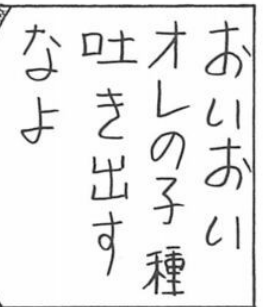 おいおい
オレの子種
吐き出す
なよ